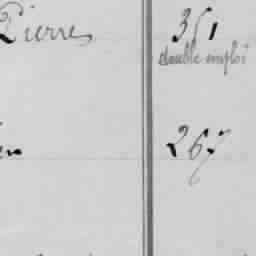 Pierre 351
double emploi
en 267